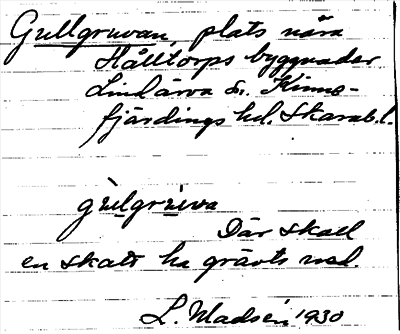 Gullgruvan, plats nära
Hålltorps byggnader
Lindärva sn. Kinne-
fjärdings hd. Skarab. l.
gùlgrùva
Där skall
en skatt ha grävts ned.
L. Madsén 1930